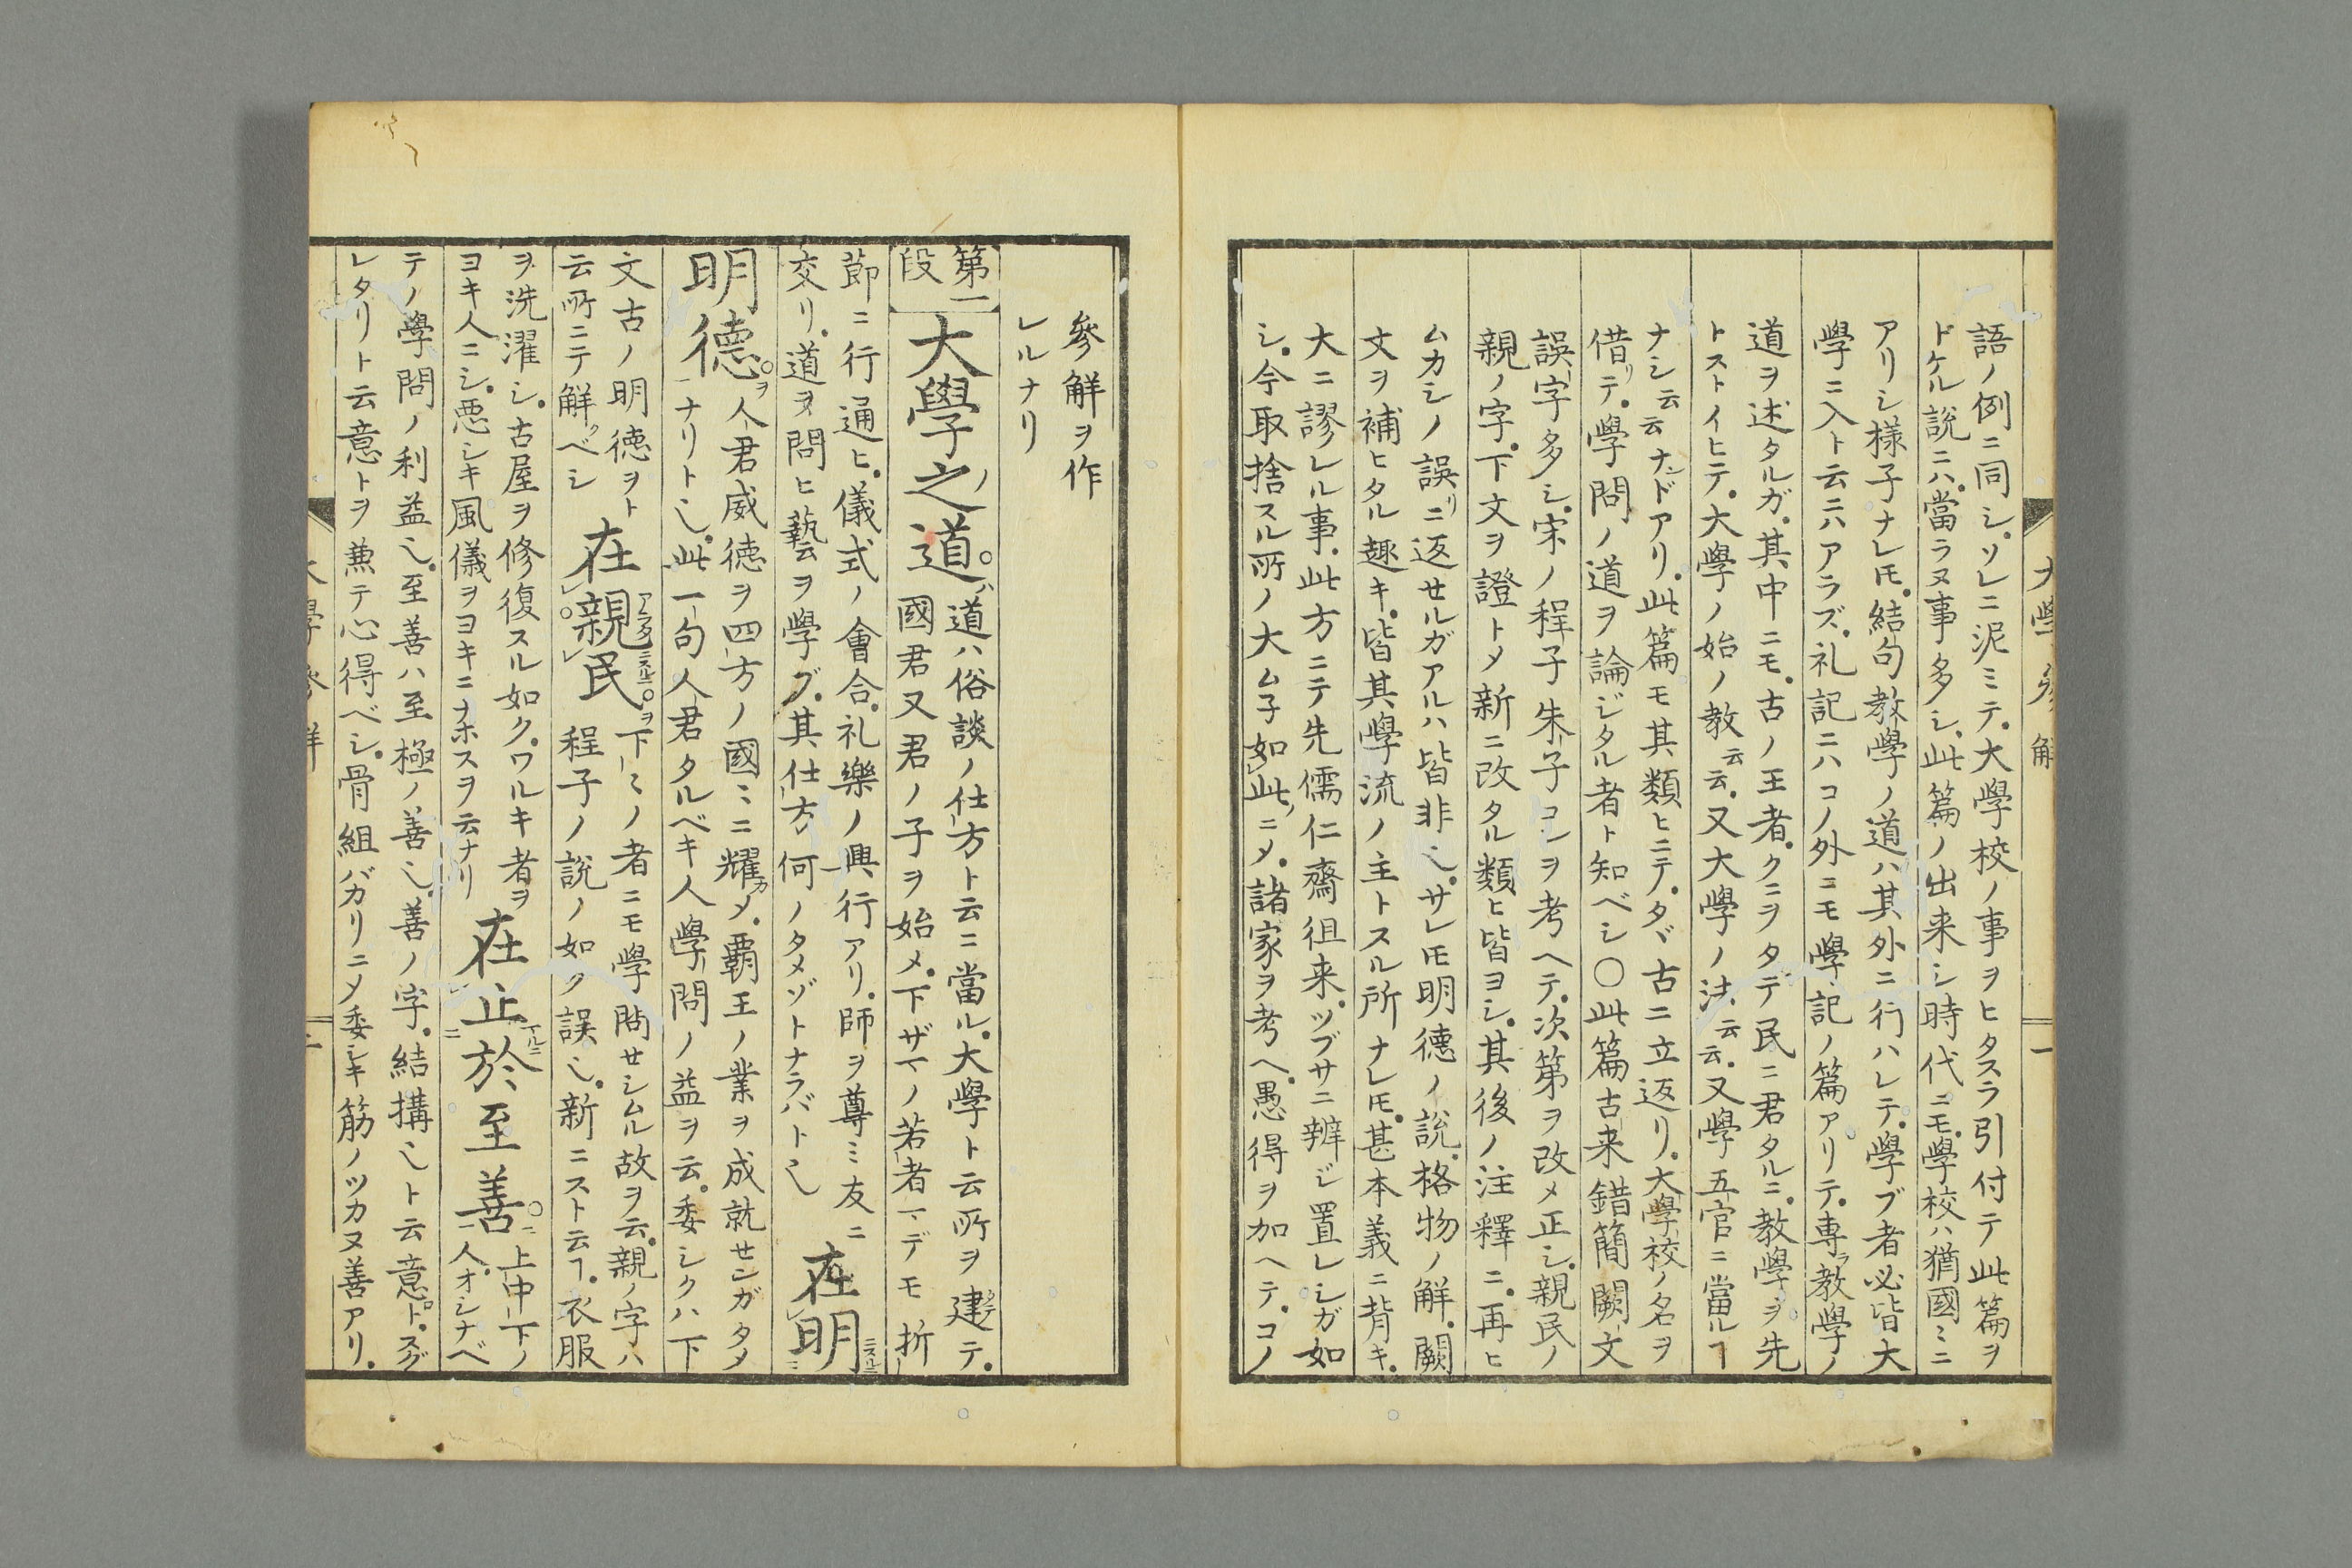 大學參解
一
語ノ例ニ同シ。ソレニ泥ミテ。大學校ノ事ヲヒタスラ引付テ此篇ヲ
ドケル說ニハ。當ラヌ事多シ。此篇ノ出来シ時代ニモ。學校ハ猶國〻ニ
アリシ様子ナレ𪜈。結句教學ノ道ハ其外ニ行ハレテ。學ブ者必皆大
學ニ入ト云ニハアラズ。礼記ニハコノ外ニモ學記ノ篇アリテ。專ラ教學ノ
道ヲ述タルガ。其中ニモ。古ノ王者。クニヲタテ民ニ君タルニ。教學ヲ先
トストイヒテ。大學ノ始ノ教云云。又大學ノ法云云。又學五官ニ當ルヿ
ナシ云云ナンドアリ。此篇モ其類ヒニテ。タヾ古ニ立返リ。大學校ノ名ヲ
借リテ。學問ノ道ヲ論ジタル者ト知ベシ〇此篇古来錯簡闕文
誤字多シ。宋ノ程子朱子コレヲ考ヘテ。次第ヲ改メ正シ。親民ノ
親ノ字。下文ヲ證トメ新ニ改タル類ヒ皆ヨシ。其後ノ注釋ニ。再ヒ
ムカシノ誤リニ返セルガアルハ皆非也。サレ𪜈明德ノ說。格物ノ解。闕
文ヲ補ヒタル趣キ。皆其學流ノ主トスル所ナレ𪜈。甚本義ニ背キ。
大ニ謬レル事。此方ニテ先儒仁齋徂来。ツブサニ辨ジ置レシガ如
シ。今取捨スル所ノ大ムネ如此ニメ。諸家ヲ考ヘ。愚得ヲ加ヘテ。コノ
參解ヲ作
レルナリ
第一段
大學之道ハ
道ハ俗談ノ仕方ト云ニ當ル。大學ト云所ヲ建テ。
國君又君ノ子ヲ始メ。下ザマノ若者マデモ折
節ニ行通ヒ。儀式ノ會合。礼樂ノ興行アリ。師ヲ尊ミ友ニ
交リ。道ヲ問ヒ藝ヲ學ブ。其仕方何ノタメゾトナラバト也
在明
明德ヲ
人君威德ヲ四方ノ國〻ニ耀カメ。覇王ノ業ヲ成就センガタメ
ナリト也。此一句人君タルベキ人學問ノ益ヲ云。委シクハ下
文古ノ明徳ヲト
云所ニテ解クベシ
在親民ヲ
下〻ノ者ニモ學問セシムル故ヲ云。親ノ字ハ
程子ノ說ノ如ク誤也。新ニスト云ヿ。衣服
ヲ洗濯シ。古屋ヲ修復スル如ク。ワルキ者ヲ
ヨキ人ニシ。悪シキ風儀ヲヨキニナホスヲ云ナリ
在止於至善ニ
上中下ノ
人。オシナベ
テノ學問ノ利益也。至善ハ至極ノ善也。善ノ字。結搆也ト云意ト。スグ
レタリト云意トヲ兼テ心得ベシ。骨組バカリニメ委シキ筋ノツカヌ善アリ。
大學參解
二